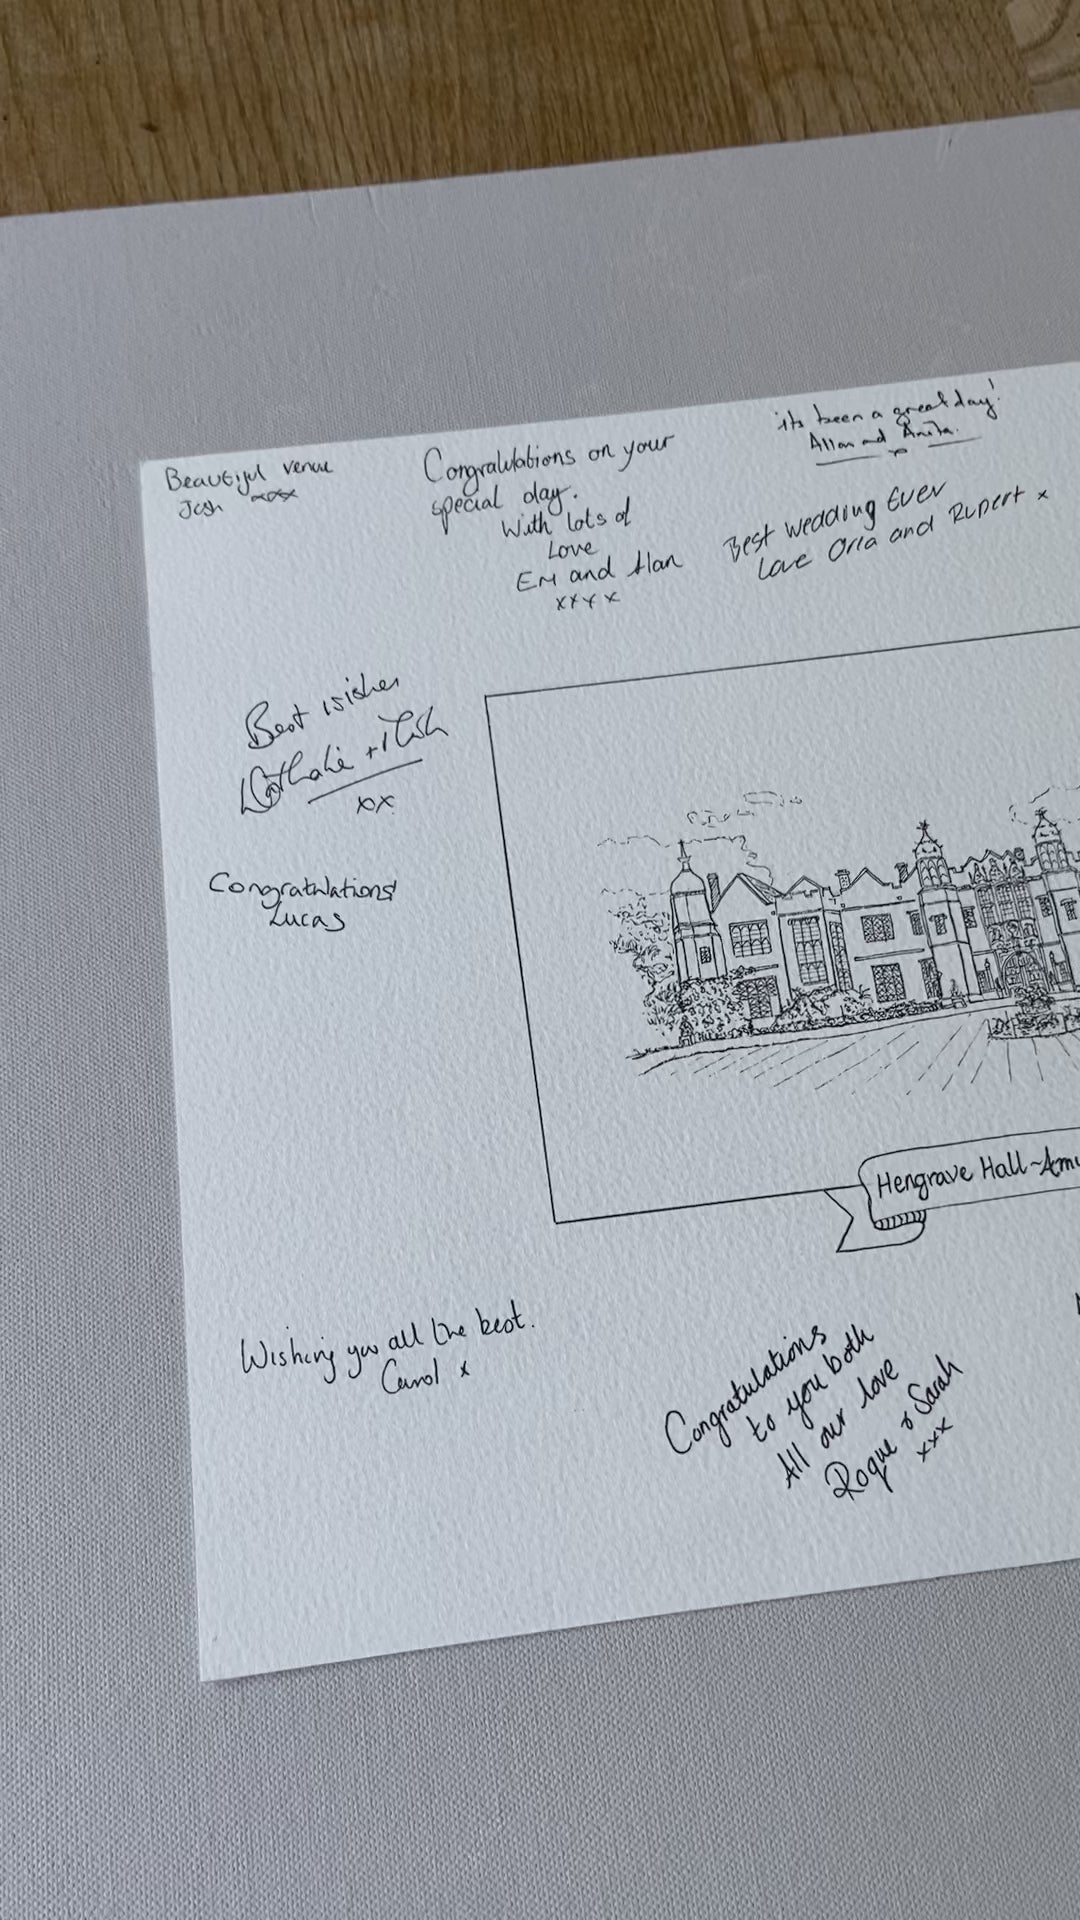 Beautiful venue
Josh xxx
Congratulations on your
special day.
With lots of
Love
Em and Alan
xxxx
its been a great day!
Allan and Anita.
x
Best wedding Ever
Love Orla and Rupert x
Best wishes
Nathalie +
xx
Congratulations!
Lucas
Hengrave Hall~
Wishing you all the best.
Carol x
Congratulations
to you both
All our love
Roque & Sarah
xxx